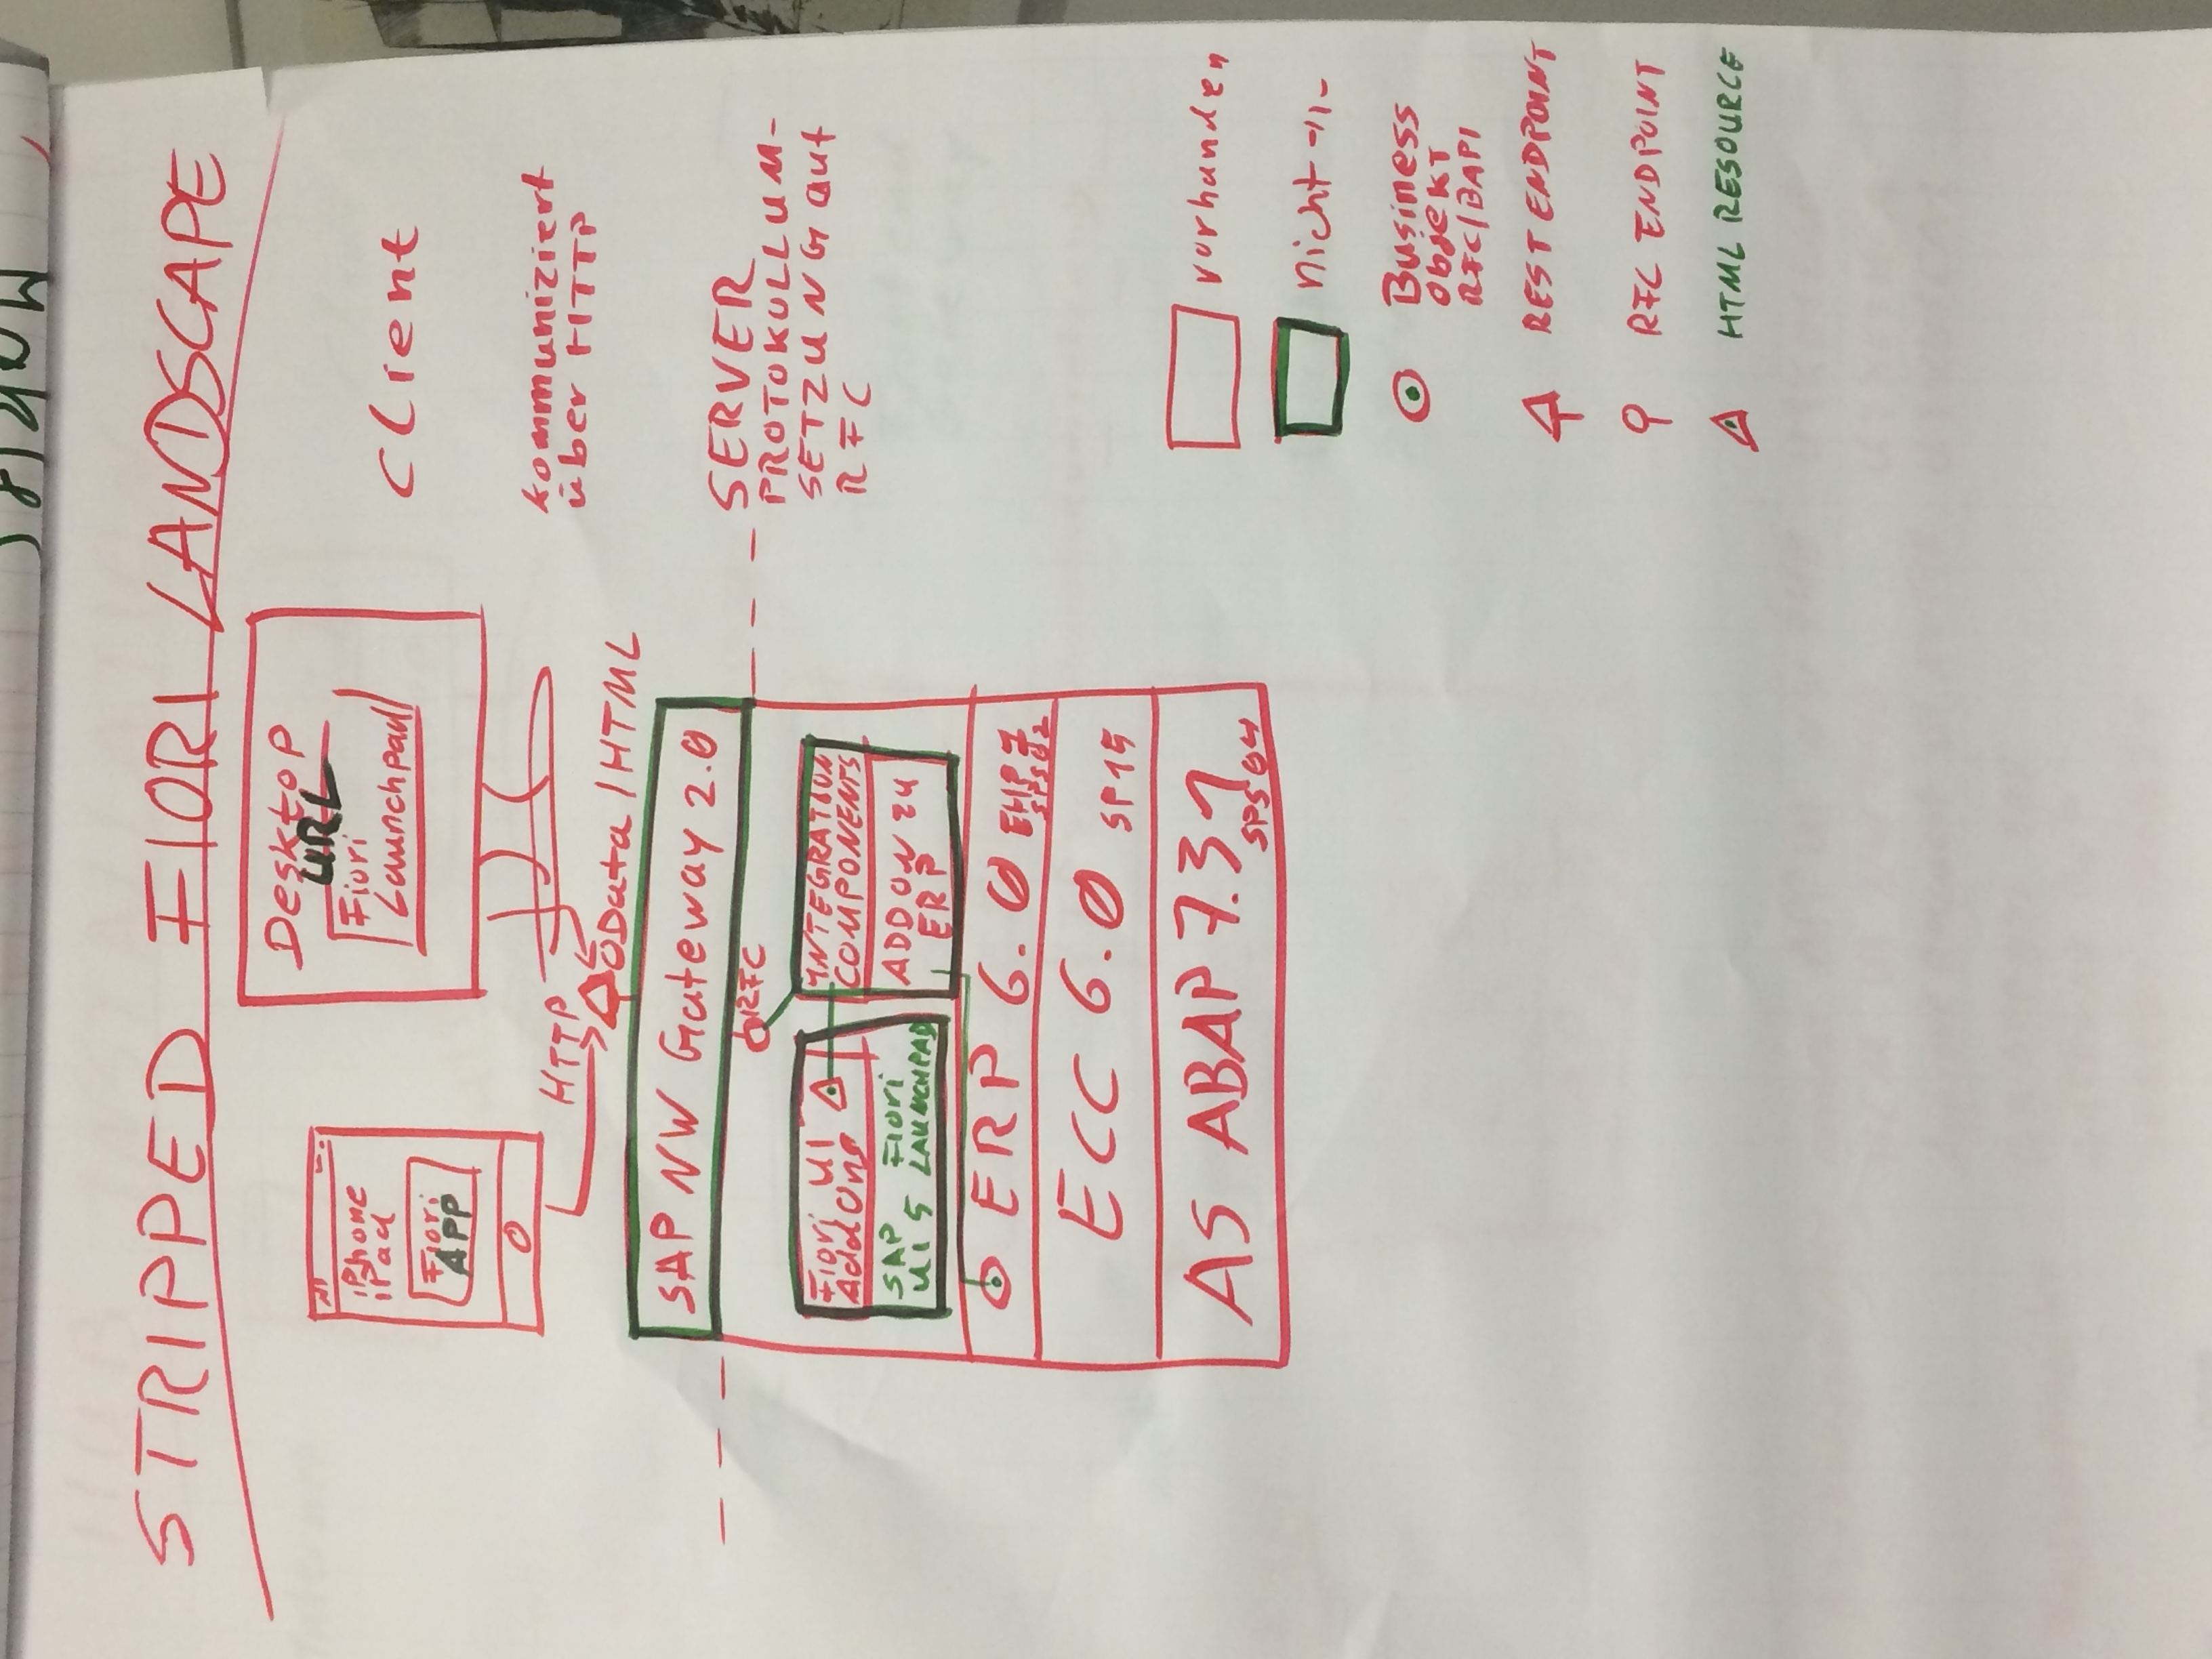 STRIPPED FIORI LANDSCAPE
Desktop
URL
Fiori
Launchpad
iPhone
iPad
Fiori
APP
Client
HTTP
kommuniziert
über HTTP
OData / HTML
SAP NW Gateway 2.0
SERVER
PROTOKOLLUM-
SETZUNG auf
RFC
RFC
Fiori UI
AddOns
SAP Fiori
UI5 LAUNCHPAD
INTEGRATION
COMPONENTS
ADD ON zu
ERP
ERP 6.0 EHP7
SPS02
ECC 6.0 SP15
AS ABAP 7.31
SPS04
vorhanden
nicht -11-
Business
Objekt
RFC/BAPI
REST ENDPOINT
RFC ENDPOINT
HTML RESOURCE